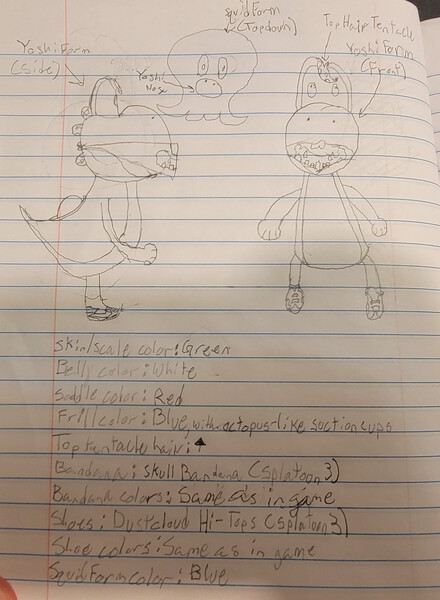 Squid Form
(Topdown)
Top Hair Tentacle
Yoshi Form
(Side)
Yoshi Form
(Front)
Yoshi
Nose
Skin/scale color: Green
Belly color: White
Saddle color: Red
Frill color: Blue, with octopus-like suction cups
Top tentacle hair: ↑
Bandana: Skull Bandana (Splatoon 3)
Bandana colors: Same as in game
Shoes: Dustcloud Hi-Tops (Splatoon 3)
Shoe colors: Same as in game
Squid Form color: Blue